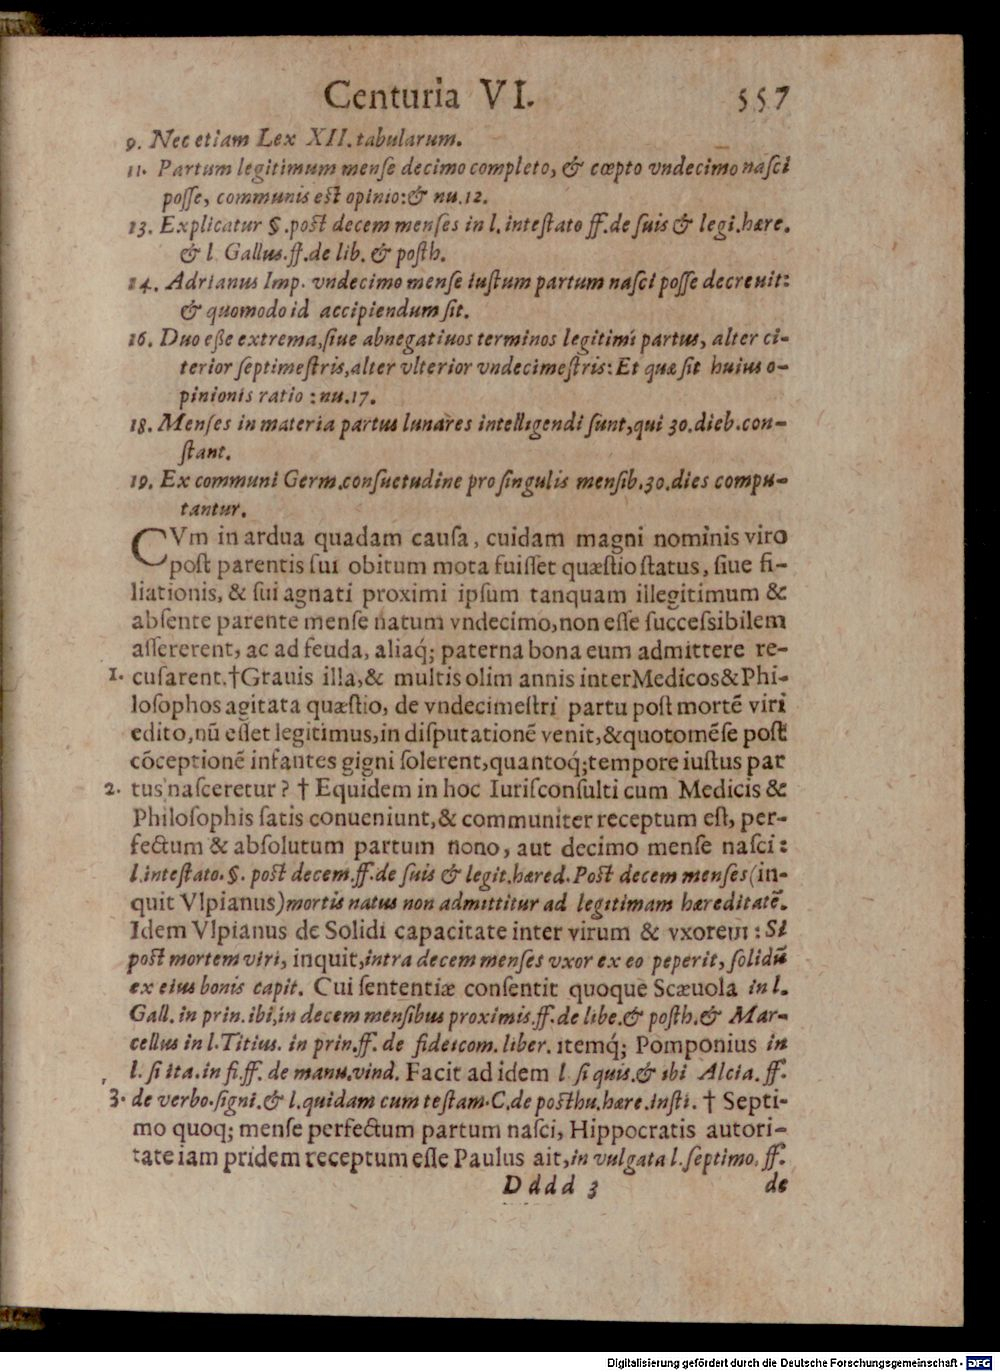 Centuria VI. 557
9. Nec etiam Lex XII. tabularum.
11. Partum legitimum menſe decimo completo, & cœpto vndecimo naſci
poſſe, communis eſt opinio: & nu. 12.
13. Explicatur §. poſt decem menſes in l. inteſtato ff. de ſuis & legi. hære.
& l Gallus. ff. de lib. & poſth.
14. Adrianus Imp. vndecimo menſe iuſtum partum naſci poſſe decreuit:
& quomodo id accipiendum ſit.
16. Duo eſſe extrema, ſiue abnegatiuos terminos legitimi partus, alter ci-
terior ſeptimeſtris, alter vlterior vndecimeſtris: Et quæ ſit huius o-
pinionis ratio : nu. 17.
18. Menſes in materia partus lunares intelligendi ſunt, qui 30. dieb. con-
ſtant.
19. Ex communi Germ. conſuetudine pro ſingulis menſib. 30. dies compu-
tantur.
CVm in ardua quadam cauſa, cuidam magni nominis viro
poſt parentis ſui obitum mota fuiſſet quæſtio ſtatus, ſiue fi-
liationis, & ſui agnati proximi ipſum tanquam illegitimum &
abſente parente menſe natum vndecimo, non eſſe ſucceſsibilem
aſſererent, ac ad feuda, aliaq́; paterna bona eum admittere re-
1. cuſarent. †Grauis illa, & multis olim annis inter Medicos & Phi-
loſophos agitata quæſtio, de vndecimeſtri partu poſt mortē viri
edito, nū eſſet legitimus, in diſputationē venit, & quotomēſe poſt
cōceptionē infantes gigni ſolerent, quantoq́; tempore iuſtus par
2. tus naſceretur? † Equidem in hoc Iuriſconſulti cum Medicis &
Philoſophis ſatis conueniunt, & communiter receptum eſt, per-
fectum & abſolutum partum nono, aut decimo menſe naſci:
l. inteſtato. §. poſt decem. ff. de ſuis & legit. hæred. Poſt decem menſes (in-
quit Vlpianus) mortis natus non admittitur ad legitimam hæreditatē.
Idem Vlpianus de Solidi capacitate inter virum & vxorem: Si
poſt mortem viri, inquit, intra decem menſes vxor ex eo peperit, ſolidū
ex eius bonis capit. Cui ſententiæ conſentit quoque Scæuola in l.
Gall. in prin. ibi, in decem menſibus proximis. ff. de libe. & poſth. & Mar-
cellus in l. Titius. in prin. ff. de fideicom. liber. itemq́; Pomponius in
l. ſi ita. in fi. ff. de manu. vind. Facit ad idem l. ſi quis. & ibi Alcia. ff.
3. de verbo. ſigni. & l. quidam cum teſtam. C. de poſthu. hære. inſti. † Septi-
mo quoq; menſe perfectum partum naſci, Hippocratis autori-
tate iam pridem receptum eſſe Paulus ait, in vulgata l. ſeptimo. ff.
D d d d 3 de
Digitalisierung gefördert durch die Deutsche Forschungsgemeinschaft - DFG